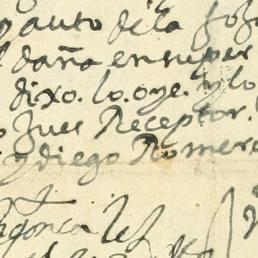 auto de la
daña en su per
dixo. lo. oye. y lo
Jues Receptor.
y diego Romero